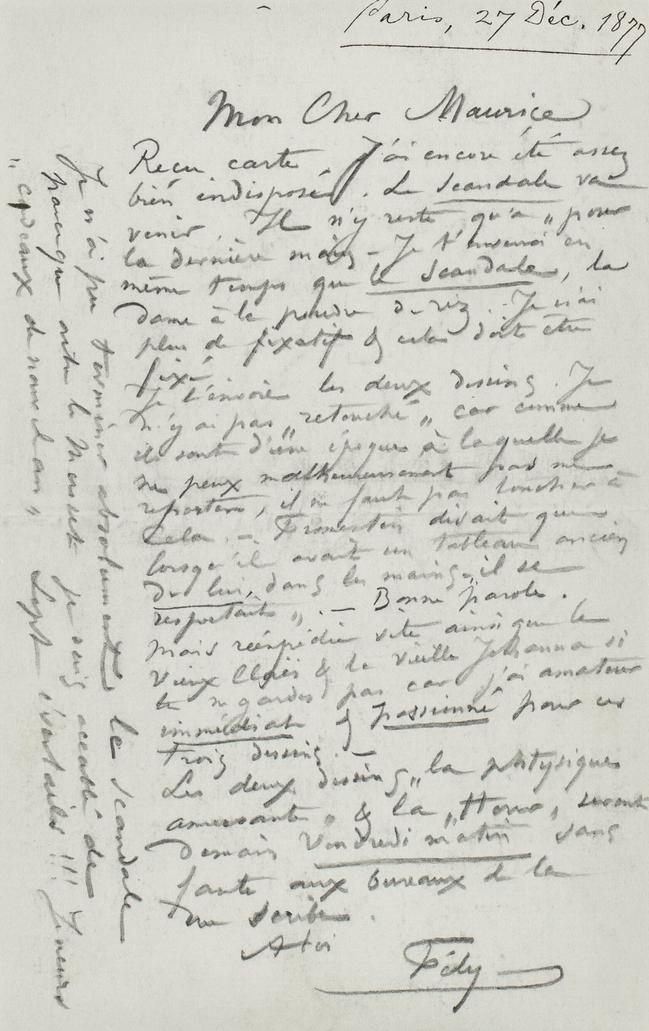 Paris, 27 Déc. 1877
Mon Cher Maurice
Reçu carte. J'ai encore été assez
bien indisposé. Le scandale va
venir. Il n'y reste qu'a "pour
la dernière main - Je t'enverrai en
même temps que le scandale, la
dame à la poudre de riz. Je n'ai
plus de fixatif & cela doit être
fixé
Je t'envoie les deux dessins. Je
n'y ai pas "retouché" car comme
ils sont d'une époque à laquelle je
ne peux malheureusement pas me
reporter, il ne faut pas toucher à
cela. - Fromentin disait que
lorsqu'il avait un tableau ancien
de lui, dans les mains, "il se
respectait". - Bonne parole.
Mais réexpédie vite ainsi que le
vieux Claes & la vieille Johanna si
tu ne gardes pas car j'ai amateur
immédiat & passionné pour ces
trois dessins. -
Les deux dessins "la phtysique
amusante" & la "Horne" seront
demain Vendredi matin sans
faute aux bureaux de la
rue Scribe.
A toi
Fély
Je n'ai pu terminer absolument le scandale
parceque outre le Musset je suis accablé de
"cadeaux de nouvel an", Sept éventails !!!